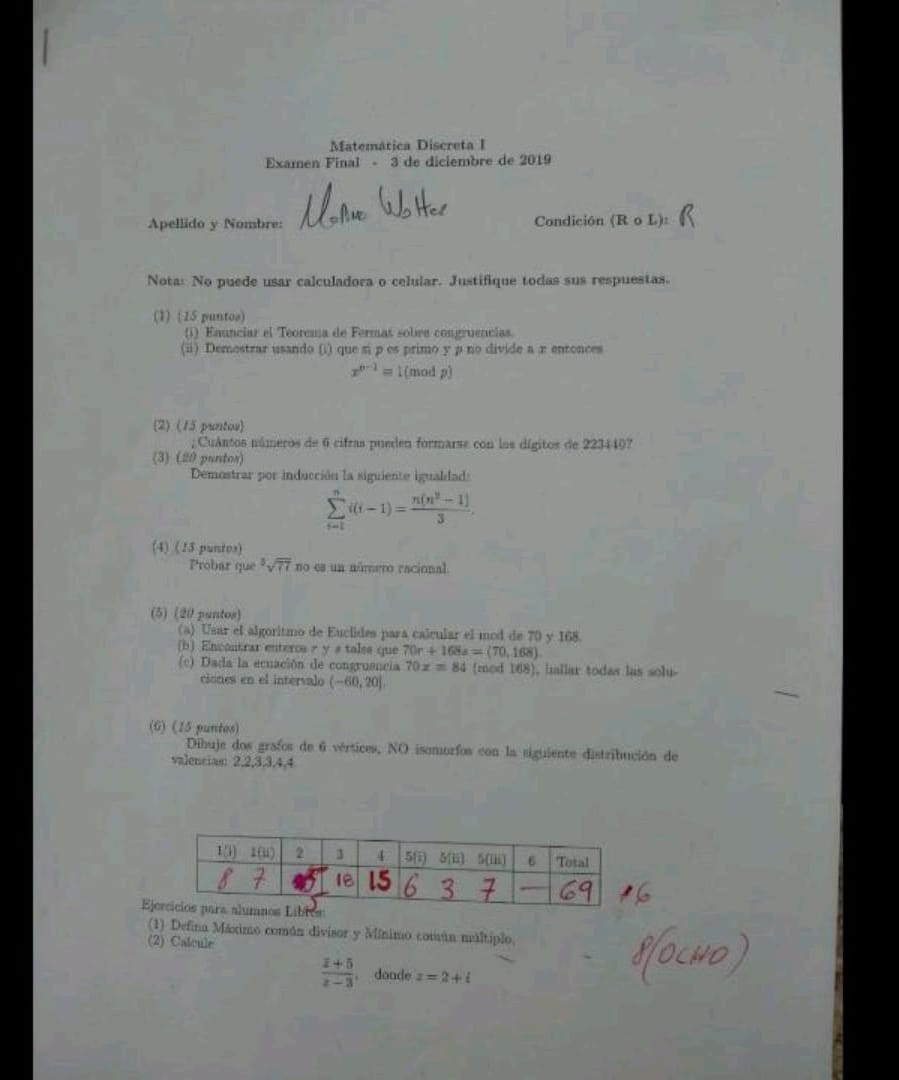 Matemática Discreta I
Examen Final - 3 de diciembre de 2019
Apellido y Nombre:
Condición (R o L): R
Nota: No puede usar calculadora o celular. Justifique todas sus respuestas.
(1) (15 puntos)
(i) Enunciar el Teorema de Fermat sobre congruencias.
(ii) Demostrar usando (i) que si p es primo y p no divide a x entonces
x^{p-1} ≡ 1(mod p)
(2) (15 puntos)
¿Cuántos números de 6 cifras pueden formarse con los dígitos de 223440?
(3) (20 puntos)
Demostrar por inducción la siguiente igualdad:
\sum_{i=1}^{n} i(i − 1) = \frac{n(n^2 − 1)}{3}.
(4) (15 puntos)
Probar que ³√77 no es un número racional.
(5) (20 puntos)
(a) Usar el algoritmo de Euclides para calcular el mcd de 70 y 168.
(b) Encontrar enteros r y s tales que 70r + 168s = (70, 168).
(c) Dada la ecuación de congruencia 70x ≡ 84 (mod 168), hallar todas las solu-
ciones en el intervalo (−60, 20].
(6) (15 puntos)
Dibuje dos grafos de 6 vértices, NO isomorfos con la siguiente distribución de
valencias: 2,2,3,3,4,4.
1(i) 1(ii) 2 3 4 5(i) 5(ii) 5(iii) 6 Total
8 7 5 18 15 6 3 7 — 69
Ejercicios para alumnos Libres:
(1) Defina Máximo común divisor y Mínimo común múltiplo.
(2) Calcule
\frac{\bar{z} + 5}{z − 3}, donde z = 2 + i
8(OCHO)